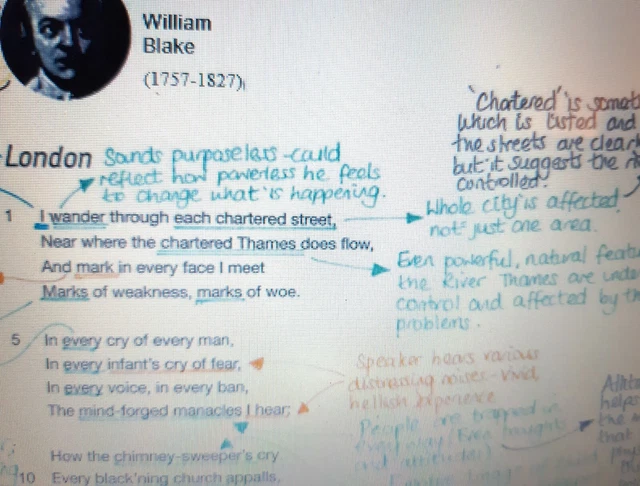 William
Blake
(1757-1827)
'Chartered' is
which is listed and
the streets are
but it suggests the
controlled.
London
Sounds purposeless - could
reflect how powerless he feels
to change what is happening.
Whole city is affected,
not just one area.
1 I wander through each chartered street,
Near where the chartered Thames does flow,
And mark in every face I meet
Marks of weakness, marks of woe.
Even powerful, natural
the River Thames are
control and affected by
problems.
5 In every cry of every man,
In every infant's cry of fear,
In every voice, in every ban,
The mind-forged manacles I hear;
Speaker hears various
distressing noises - vivid,
hellish experience
People are trapped in
and attitudes)
helps
that
How the chimney-sweeper's cry
10 Every black'ning church appalls,